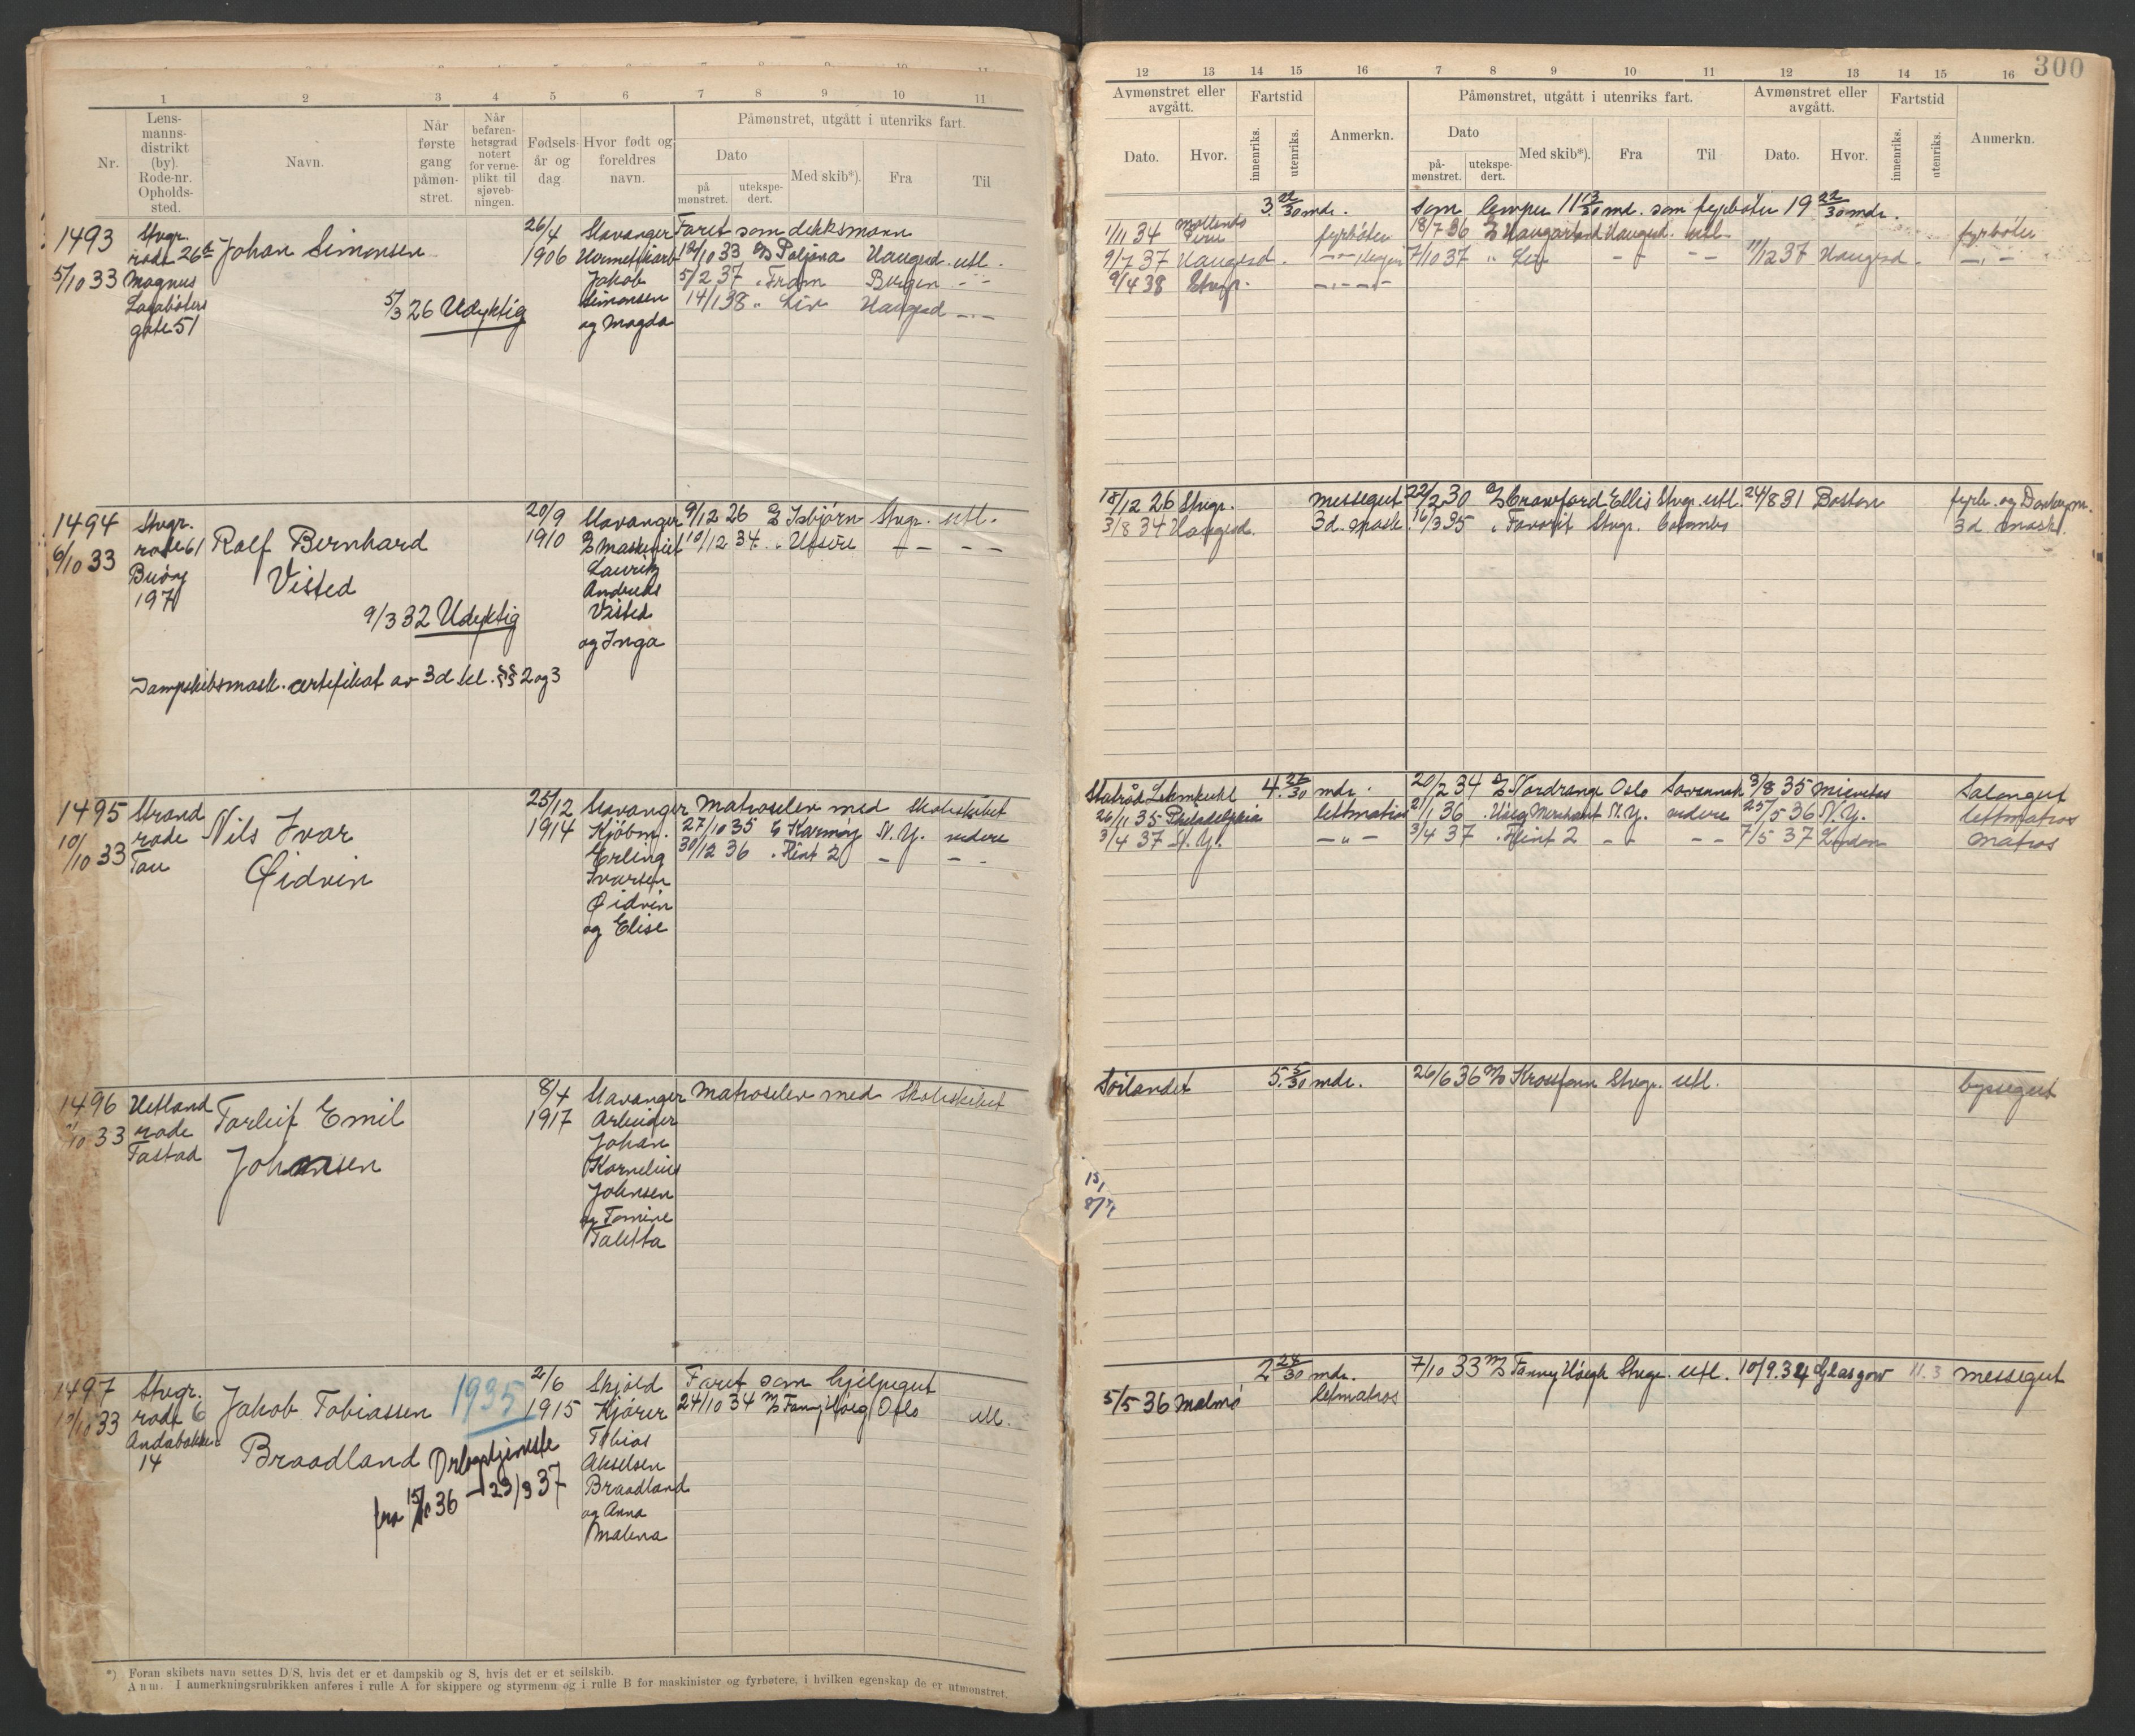 1 2 3 4 5 6 7 8 9 10 11
Nr.
Lens-
manns-
distrikt
(by).
Rode-nr.
Opholds-
sted.
Navn.
Når
første
gang
påmøn-
stret.
Når
befaren-
hetsgrad
notert
for verne-
plikt til
sjøveb-
ningen.
Fødsels-
år og
dag
Hvor født og
foreldres
navn.
Påmønstret, utgått i utenriks fart.
Dato
på
mønstret.
utekspe-
dert.
Med skib*).
Fra
Til
1493
5/10 33
Stvgr.
rode 26a
Magnus
Lagabøters
gate 51
Johan Simonsen
5/3 26 Udyktig
26/4
1906
Stavanger
Jakob
Simonsen
og Magda
Faret som dekksmann
12/10 33 Poljana Haugsd. utl.
5/2 37 Fram Bergen - -
14/1 38 " Liv Haugesd - -
1494
6/10 33
Stvgr.
rode 61
Buøy
197
Rolf Bernhard
Visted
9/3 32 Udyktig
Dampskibsmask. certifikat av 3d kl. §§ 2 og 3
20/9
1910
Stavanger
Maskinist
Lauritz
Andreas
Visted
og Inga
9/12 26 Isbjørn Stvgr. utl.
10/12 34 " Utsire - - - -
1495
10/10 33
Strand
rode
Tau
Nils Ivar
Øidvin
25/12
1914
Stavanger
Kjøbm.
Erling
Ivarsen
Øidvin
og Elise
Matroselev med skoleskibet
27/10 35 Karmøy N.Y. videre
30/12 36 " Flint 2 - - -
1496
/10 33
Hetland
rode
Tastad
Torleif Emil
Johansen
8/4
1917
Stavanger
Arbeider
Johan
Kornelius
Johnsen
og Tomine
Taletta
Matroselev med skoleskibet
1497
/10 33
Stvgr.
rode 6
Andabakken
14
Jakob Tobiassen
Braadland
1935
Orlogstjeneste
fra 15/ 36 - 23/3 37
2/6
1915
Skjold
Kjører
Tobias
Akselsen
Braadland
og Anna
Malena
Faret som hjelpegut
24/10 34 Fanny Høeg Oslo utl.
*) Foran skibets navn settes D/S, hvis det er et dampskib og S, hvis det er et seilskib.
Anm. I anmerkningsrubrikken anføres i rulle A for skippere og styrmenn og i rulle B for maskinister og fyrbøtere, i hvilken egenskap de er utmønstret.
12 13 14 15 16 7 8 9 10 11 12 13 14 15 16
300
Avmønstret eller
avgått.
Dato.
Hvor.
Fartstid
innenriks.
utenriks.
Anmerkn.
Påmønstret, utgått i utenriks fart.
Dato
på-
mønstret.
utekspe-
dert.
Med skib*).
Fra
Til
Avmønstret eller
avgått.
Dato.
Hvor.
Fartstid
innenriks.
utenriks.
Anmerkn.
3 22/30 mdr. som lemper 11 13/30 md. som fyrbøter 19 22/30 mdr.
1/11 34 Mollendo Peru fyrbøter 18/7 36 Haugarland Haugesd. utl. fyrbøter
9/7 37 Haugesd. 7/10 37 " Liv - - - - 11/12 37 Haugesd. - " -
9/4 38 Stvgr. - " - " -
18/12 26 Stvgr. messegut 22/2 30 Crawford Ellis Stvgr. utl. 24/8 31 Boston fyrb. og Donkeym.
3/8 34 Haugesd. 3d. mask. 16/3 35 " Favorit Stvgr. Colombo 3d mask.
Statsråd Lehmkuhl 4 27/30 mdr. 20/2 34 Nordvangr Oslo Savannah 3/8 35 Salongut
26/11 35 Philadelphia lettmatros 21/1 36 " Høeg Merchant N.Y. videre 25/5 36 N.Y. lettmatros
3/4 37 N.Y. - " - 3/4 37 " Flint 2 - - - - 7/5 37 London Matros
Sørlandet 5 5/30 mdr. 26/6 36 Krossfonn Stvgr. utl. byssegut
2 24/30 mdr. 7/10 33 Fanny Høegh Stvgr. utl. 10/9.34 Glasgow 11.3 messegut
5/5 36 Malmø letmatros